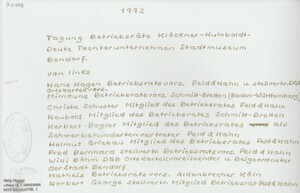 1992
Tagung Betriebsräte Klöckner-Humboldt-
Deutz Tochterunternehmen Stadtmuseum
Bendorf
von links
Hans Hagen Betriebsratsvors. Feld & Hahn u stellvertr. DGB
Ortskartellvors.
Betriebsratsvors. Schmitt-Bretten (Baden-Württemberg)
Christa Schuster Mitglied des Betriebsrates Feld & Hahn
Neubold Mitglied des Betriebsrates Schmitt-Bretten
Herbert Bogler Mitglied des Betriebsrates als
Schwerbehindertenvertreter Feld & Hahn
Helmut Griebau Mitglied des Betriebsrates Feld & Hahn
Fred Bernhard Stellvertr Betriebsratsvors. Feld & Hahn
Willi Böhm DGB Ortskartellvorsitzender u Beigeordneter
der Stadt Bendorf
Matheis Betriebsratsvors. Köln
Norbert George Stellvertr Mitglied Betriebsrat Feld & Hahn